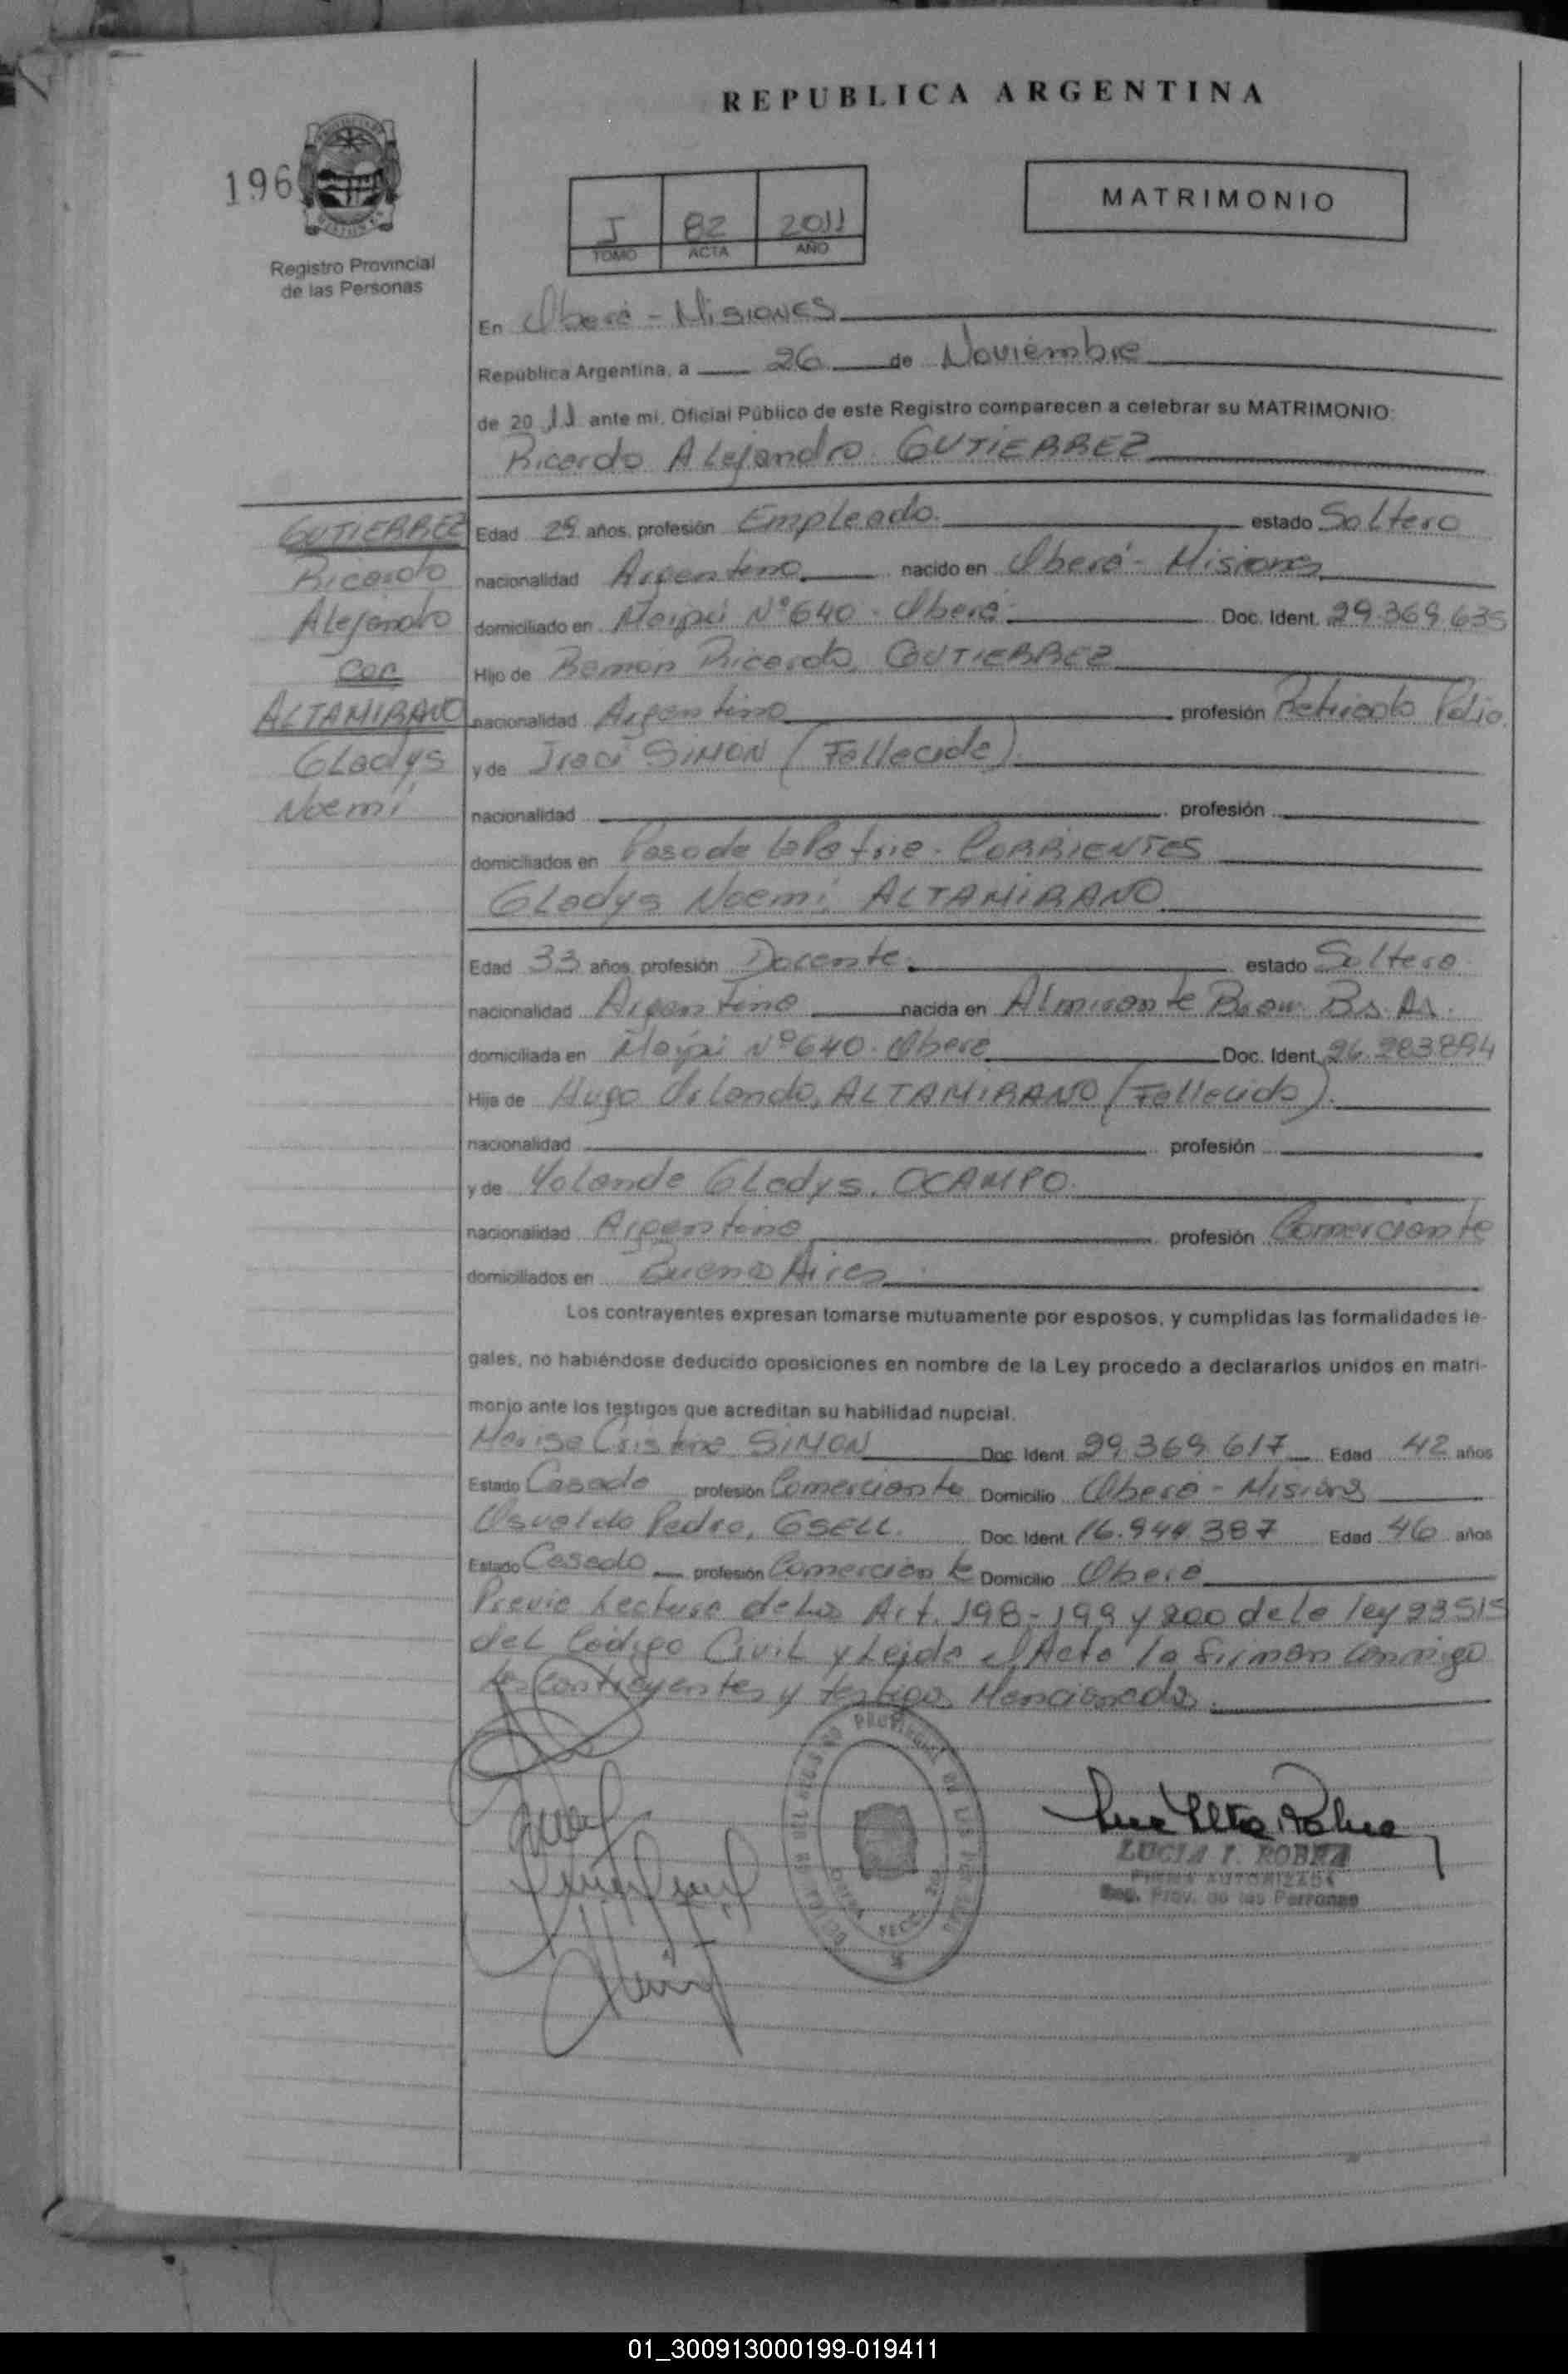 REPUBLICA ARGENTINA
196
Registro Provincial
de las Personas
MATRIMONIO
I 82 2011
TOMO ACTA AÑO
En Oberá - Misiones
República Argentina, a 26 de Noviembre
de 20 11 ante mi, Oficial Público de este Registro comparecen a celebrar su MATRIMONIO:
Ricardo Alejandro GUTIERREZ
GUTIERREZ
Ricardo
Alejandro
con
ALTAMIRANO
Gladys
Noemí
Edad 29 años, profesión Empleado. estado Soltero
nacionalidad Argentina nacido en Oberá - Misiones
domiciliado en Maipú Nº 640 - Oberá Doc. Ident. 29.369.635
Hijo de Ramón Ricardo, GUTIERREZ
nacionalidad Argentina profesión Retirado Polic.
y de Iraci SIMON (Fallecida)
nacionalidad profesión
domiciliados en Paso de la Patria - CORRIENTES
Gladys Noemí ALTAMIRANO
Edad 33 años, profesión Docente. estado Soltera
nacionalidad Argentina nacida en Almirante Brow. Bs. As.
domiciliada en Maipú Nº 640 - Oberá Doc. Ident. 26.283.894
Hija de Hugo Orlando, ALTAMIRANO (Fallecido).
nacionalidad profesión
y de Yolanda Gladys, OCAMPO
nacionalidad Argentina profesión Comerciante
domiciliados en Buenos Aires
Los contrayentes expresan tomarse mutuamente por esposos, y cumplidas las formalidades le-
gales, no habiéndose deducido oposiciones en nombre de la Ley procedo a declararlos unidos en matri-
monio ante los testigos que acreditan su habilidad nupcial.
Marisa Cristina SIMON Doc. Ident. 29.369.617 Edad 42 años
Estado Casada profesión Comerciante Domicilio Oberá - Misiones
Osvaldo Pedro, GSELL. Doc. Ident. 16.944.387 Edad 46 años
Estado Casado profesión Comerciante Domicilio Oberá
Previa Lectura de los Art. 198-199 y 200 de la ley 23515
del Código Civil y Leída el Acta la firman conmigo
los contrayentes y testigos Mencionados.
LUCIA I. ROBRA
FIRMA AUTORIZADA
Reg. Prov. de las Personas
01_300913000199-019411